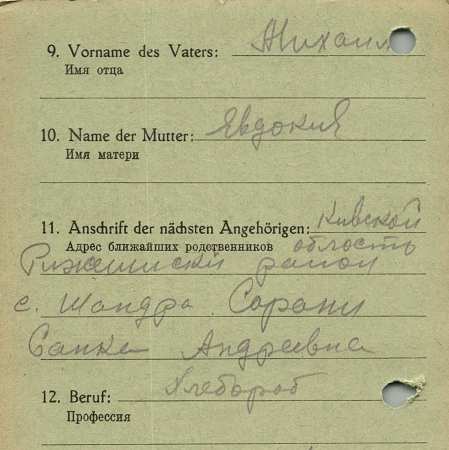 9. Vorname des Vaters: Михаил
Имя отца
10. Name der Mutter: Явдокия
Имя матери
11. Anschrift der nächsten Angehörigen: Кивской
Адрес ближайших родственников облость
Рижищискій район
с. Шандра Сорони
Санке Андреевне
12. Beruf: Хлебороб
Профессия